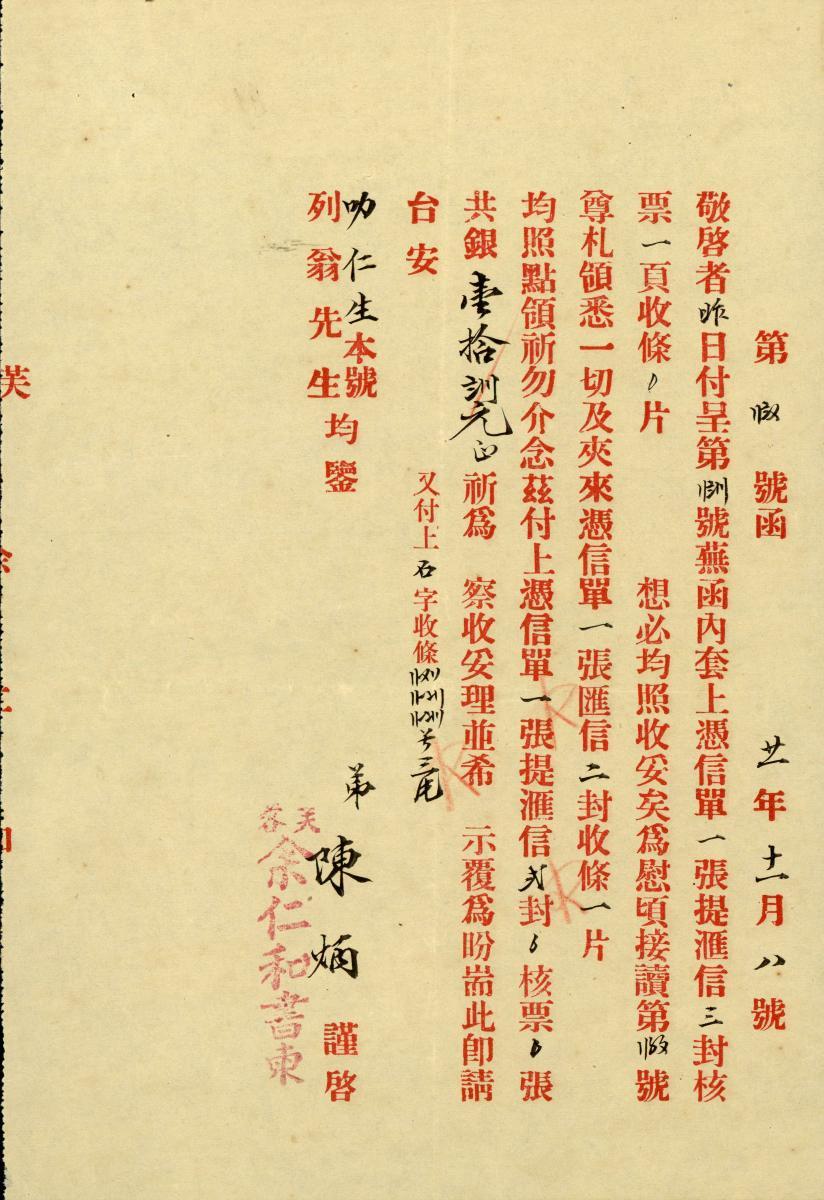 第 號函 廿一年十一月八號
敬啓者昨日付呈第 號蕪函內套上憑信單一張提滙信三封核
票一頁收條 片 想必均照收妥矣爲慰頃接讀第 號
尊札領悉一切及夾來憑信單一張匯信二封收條一片
均照點領祈勿介念茲付上憑信單一張提滙信弍封 核票 張
共銀壹拾 元正祈爲 察收妥理並希 示覆爲盼耑此即請
台安
又付上石字收條
叻仁生本號
列翁先生均鑒
弟陳炳謹啓
芙蓉
余仁和書柬
芙